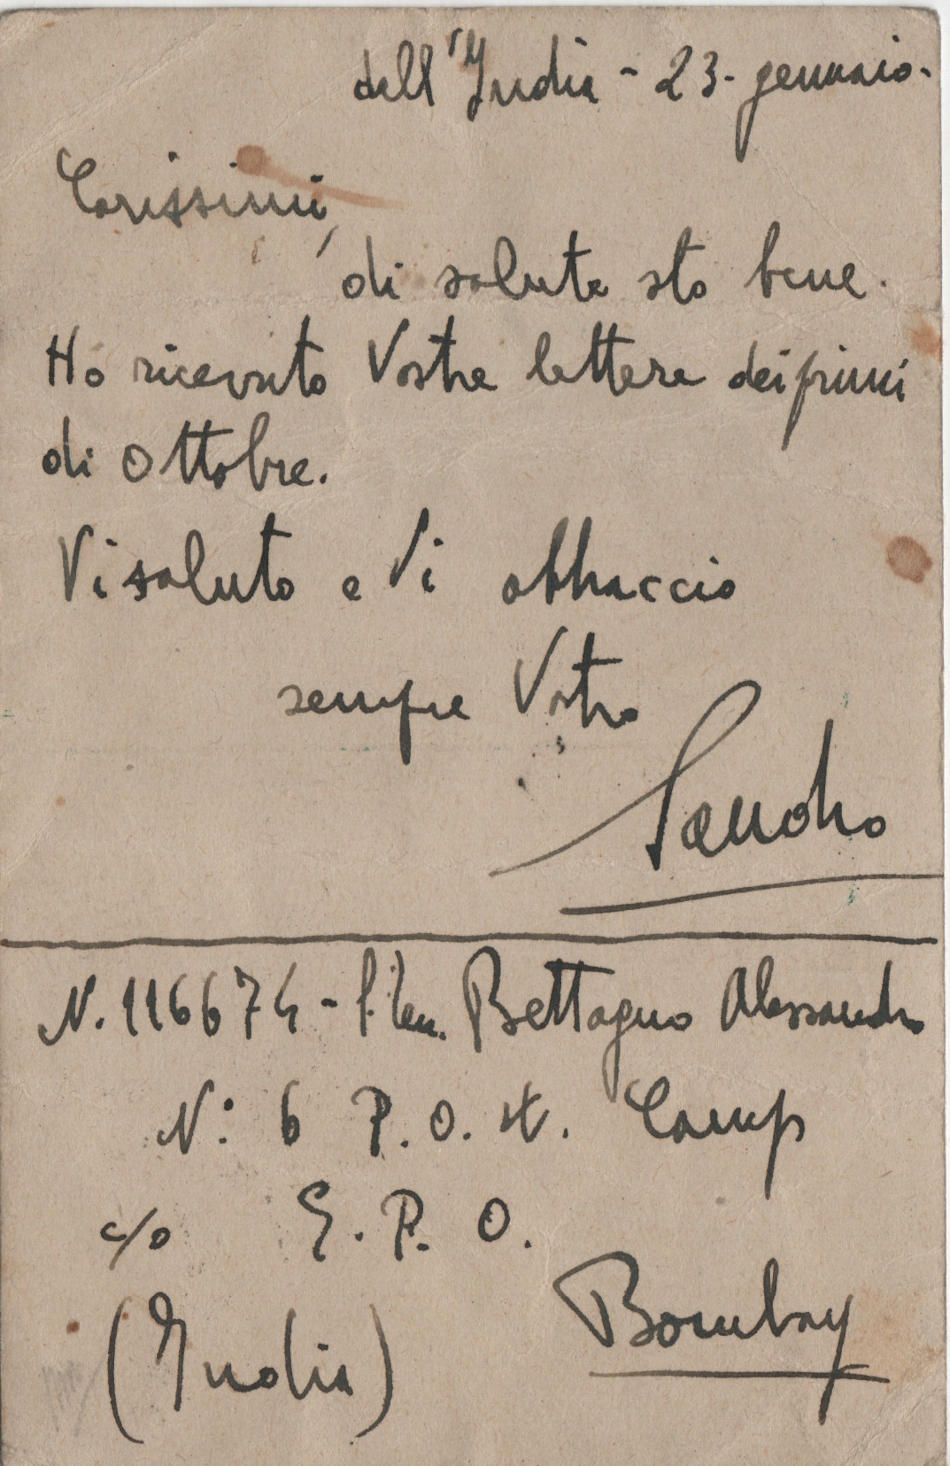 dell'India - 23 - gennaio -
Carissimi,
di salute sto bene.
Ho ricevuto Vostre lettere dei primi
di Ottobre.
Vi saluto e Vi abbraccio
sempre Vostro
Sandro
N. 116674 - S. Ten. Bettagno Alessandro
N: 6 P. O. W. Camp
c/o G. P. O.
Bombay
(India)